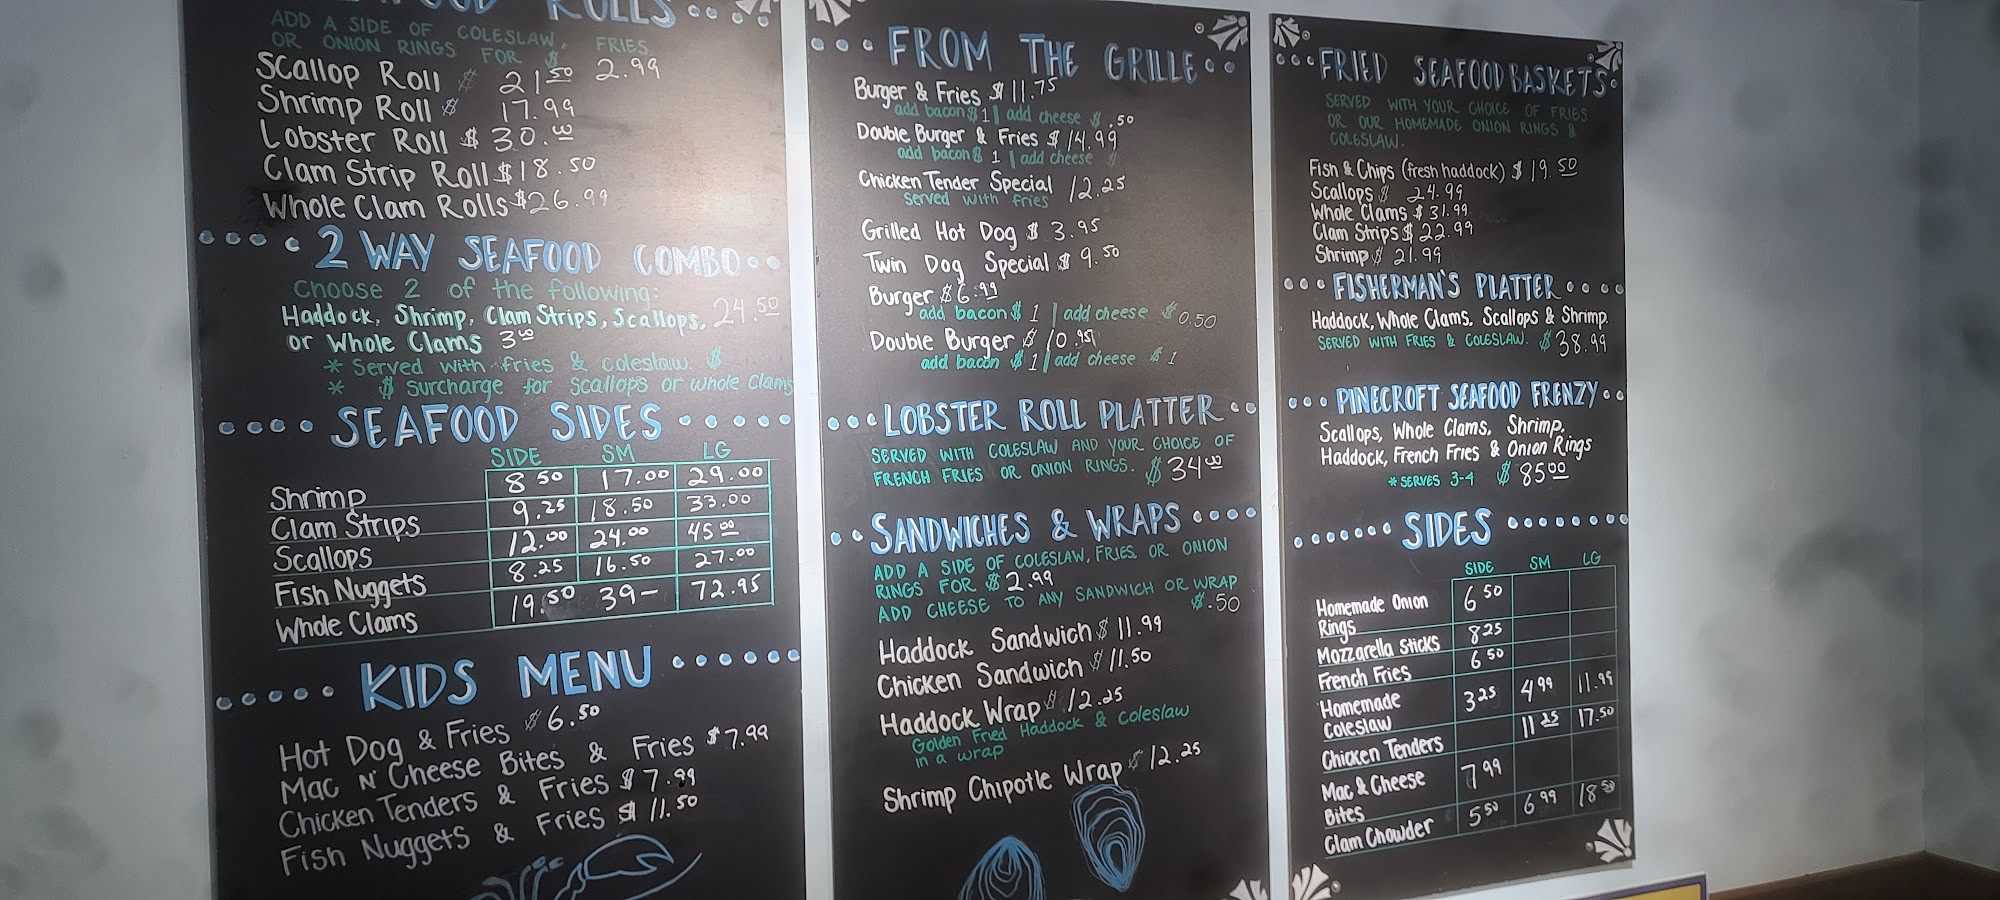 ROLLS
ADD A SIDE OF COLESLAW, FRIES,
OR ONION RINGS FOR $ 2.99
Scallop Roll $ 21.50
Shrimp Roll $ 17.99
Lobster Roll $ 30.00
Clam Strip Roll $ 18.50
Whole Clam Rolls $ 26.99
2 WAY SEAFOOD COMBO
Choose 2 of the following:
Haddock, Shrimp, Clam Strips, Scallops, 24.50
or Whole Clams 3.00
* Served with fries & coleslaw. $
* $ surcharge for scallops or whole clams
SEAFOOD SIDES
SIDE SM LG
Shrimp 8.50 17.00 29.00
Clam Strips 9.25 18.50 33.00
Scallops 12.00 24.00 45.00
Fish Nuggets 8.25 16.50 27.00
Whole Clams 19.50 39- 72.95
KIDS MENU
Hot Dog & Fries $ 6.50
Mac N' Cheese Bites & Fries $ 7.99
Chicken Tenders & Fries $ 7.99
Fish Nuggets & Fries $ 11.50
FROM THE GRILLE
Burger & Fries $ 11.75
add bacon $ 1 | add cheese $ .50
Double Burger & Fries $ 14.99
add bacon $ 1 | add cheese $
Chicken Tender Special 12.25
served with fries
Grilled Hot Dog $ 3.95
Twin Dog Special $ 9.50
Burger $ 6.99
add bacon $ 1 | add cheese $ 0.50
Double Burger $ 10.95
add bacon $ 1 | add cheese $ 1
LOBSTER ROLL PLATTER
SERVED WITH COLESLAW AND YOUR CHOICE OF
FRENCH FRIES OR ONION RINGS. $ 34.00
SANDWICHES & WRAPS
ADD A SIDE OF COLESLAW, FRIES OR ONION
RINGS FOR $ 2.99
ADD CHEESE TO ANY SANDWICH OR WRAP
$ .50
Haddock Sandwich $ 11.99
Chicken Sandwich $ 11.50
Haddock Wrap $ 12.25
Golden Fried Haddock & Coleslaw
in a wrap
Shrimp Chipotle Wrap $ 12.25
FRIED SEAFOOD BASKETS
SERVED WITH YOUR CHOICE OF FRIES
OR OUR HOMEMADE ONION RINGS &
COLESLAW.
Fish & Chips (fresh haddock) $ 19.50
Scallops $ 24.99
Whole Clams $ 31.99
Clam Strips $ 22.99
Shrimp $ 21.99
FISHERMAN'S PLATTER
Haddock, Whole Clams, Scallops & Shrimp.
SERVED WITH FRIES & COLESLAW. $ 38.99
PINECROFT SEAFOOD FRENZY
Scallops, Whole Clams, Shrimp,
Haddock, French Fries & Onion Rings
* SERVES 3-4 $ 85.00
SIDES
SIDE SM LG
Homemade Onion 6.50
Rings
Mozzarella Sticks 8.25
French Fries 6.50
Homemade 3.25 4.99 11.99
Coleslaw
Chicken Tenders 11.25 17.50
Mac & Cheese 7.99
Bites
Clam Chowder 5.50 6.99 18.50